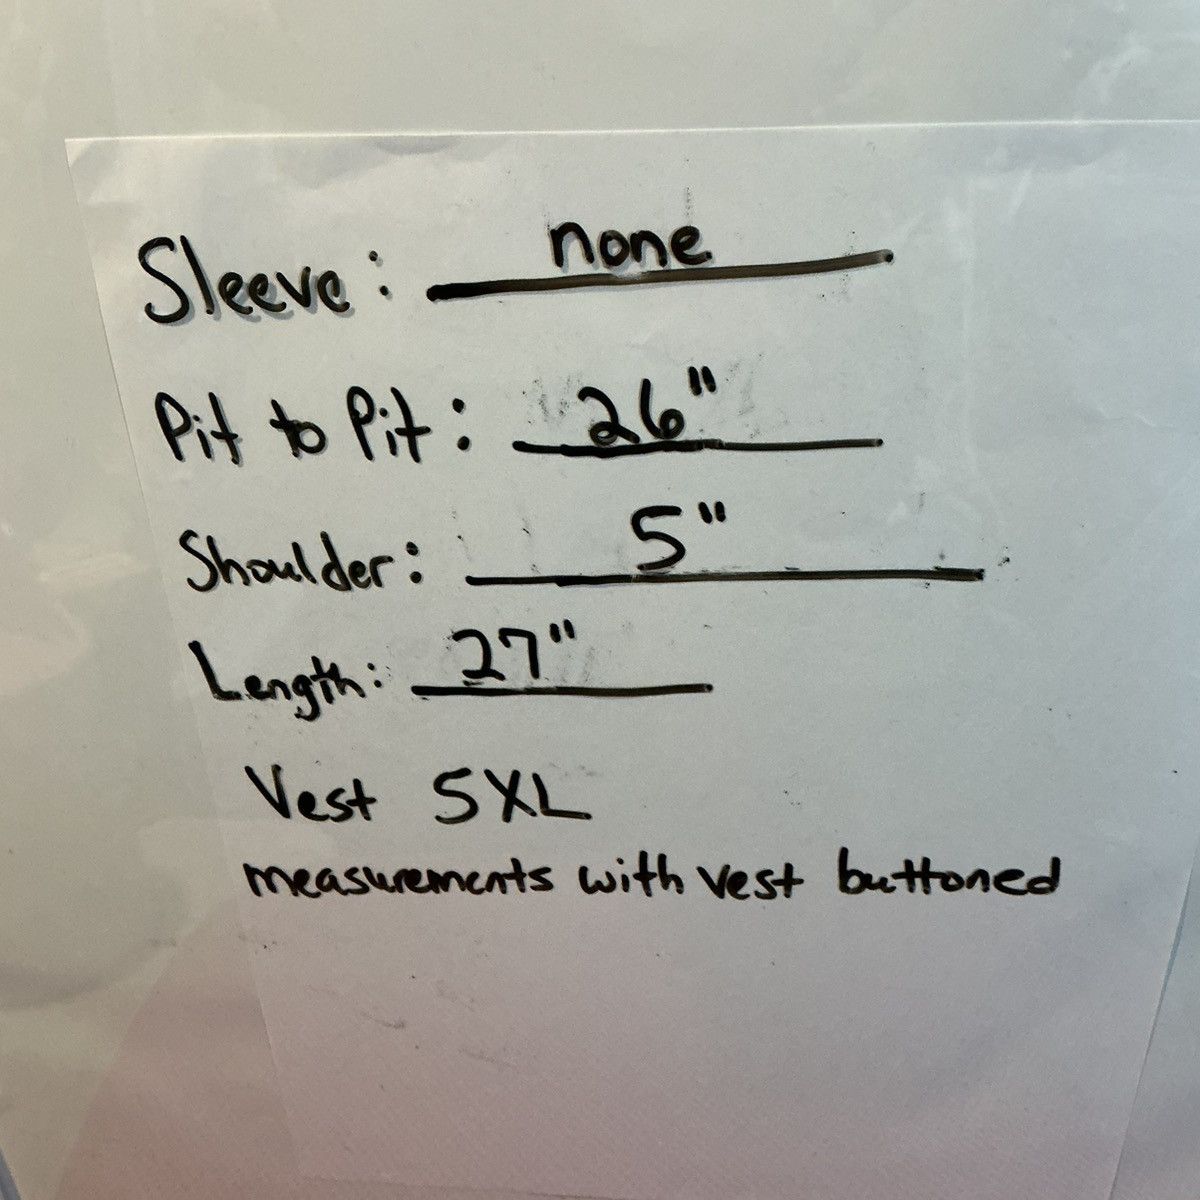 Sleeve: none
Pit to Pit: 26"
Shoulder: 5"
Length: 27"
Vest 5XL
measurements with vest buttoned